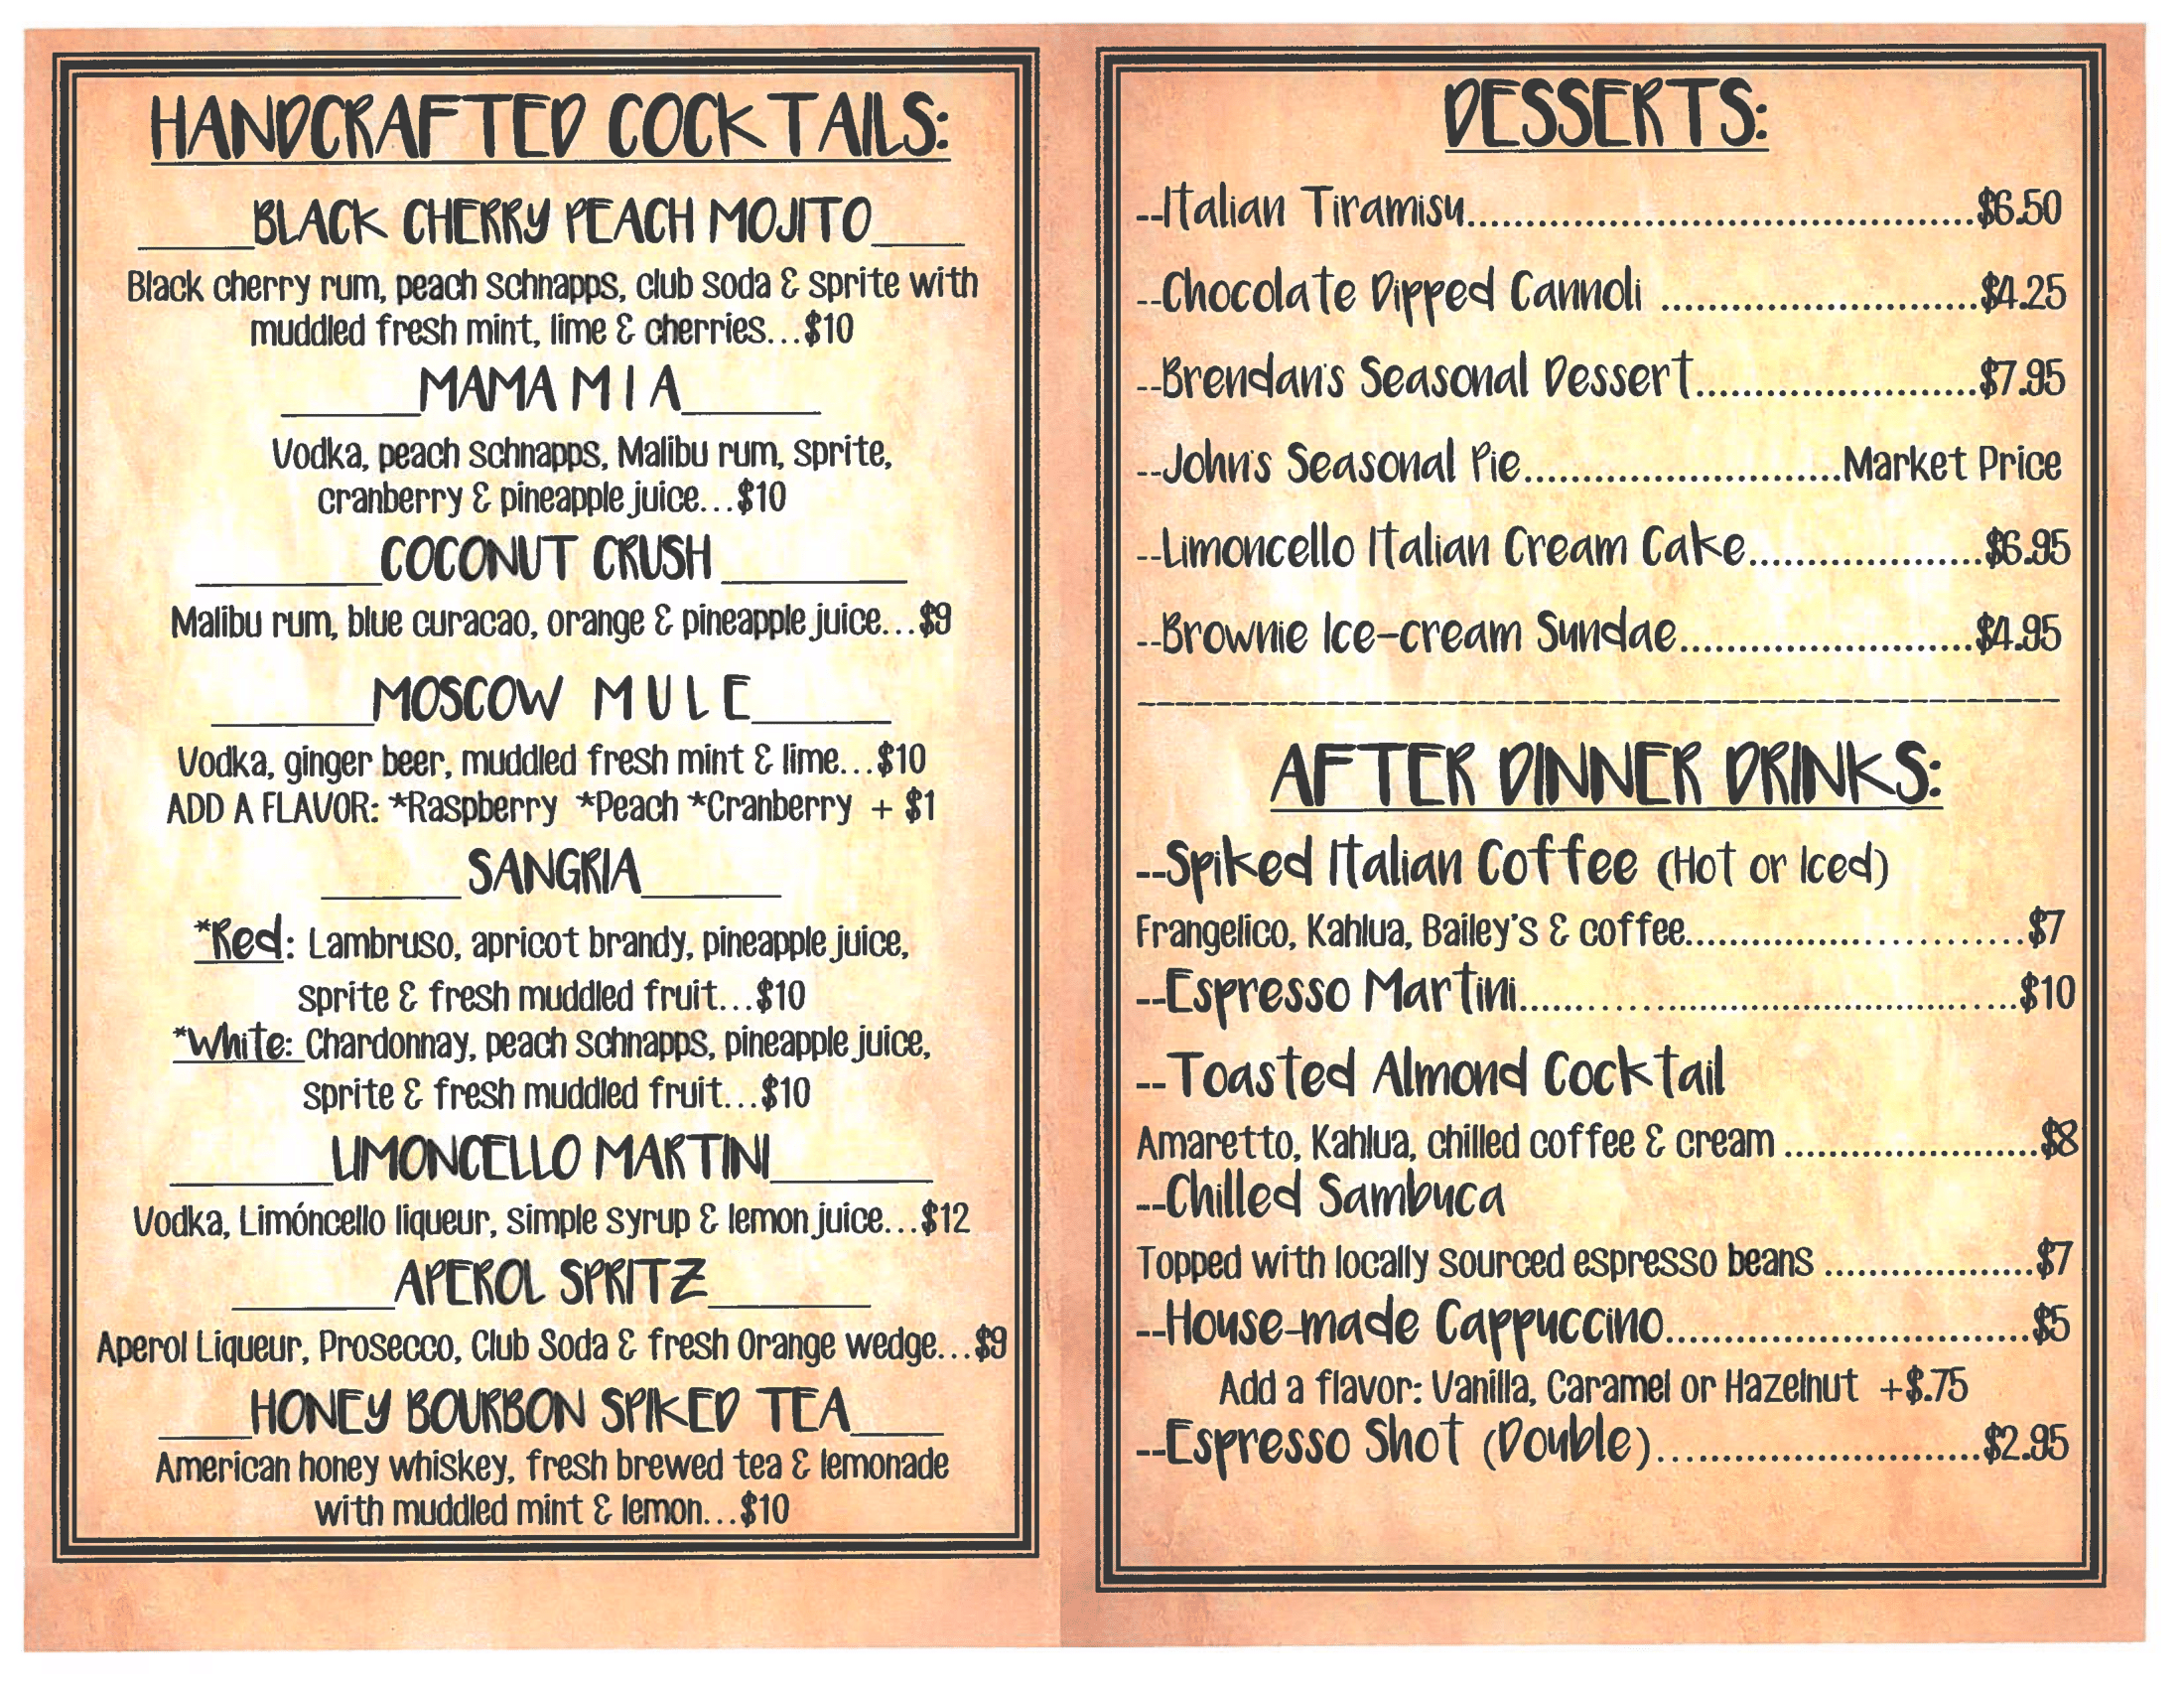 HANDCRAFTED COCKTAILS:
_____BLACK CHERRY PEACH MOJITO____
Black cherry rum, peach schnapps, club soda & sprite with
muddled fresh mint, lime & cherries...$10
______MAMA M I A______
Vodka, peach schnapps, Malibu rum, sprite,
cranberry & pineapple juice...$10
________COCONUT CRUSH________
Malibu rum, blue curacao, orange & pineapple juice...$9
_______MOSCOW M U L E______
Vodka, ginger beer, muddled fresh mint & lime...$10
ADD A FLAVOR: *Raspberry *Peach *Cranberry + $1
______SANGRIA______
*Red: Lambruso, apricot brandy, pineapple juice,
sprite & fresh muddled fruit...$10
*White: Chardonnay, peach schnapps, pineapple juice,
sprite & fresh muddled fruit...$10
_______LIMONCELLO MARTINI_______
Vodka, Limóncello liqueur, simple syrup & lemon juice...$12
_______APEROL SPRITZ_______
Aperol Liqueur, Prosecco, Club Soda & fresh Orange wedge...$9
____HONEY BOURBON SPIKED TEA____
American honey whiskey, fresh brewed tea & lemonade
with muddled mint & lemon...$10
DESSERTS:
--Italian Tiramisu............................................$6.50
--Chocolate Dipped Cannoli ............................$4.25
--Brendan's Seasonal Dessert.........................$7.95
--John's Seasonal Pie............................Market Price
--Limoncello Italian Cream Cake.....................$6.95
--Brownie Ice-cream Sundae..........................$4.95
--------------------------------------------------
AFTER DINNER DRINKS:
--Spiked Italian Coffee (Hot or Iced)
Frangelico, Kahlua, Bailey's & coffee..............................$7
--Espresso Martini...........................................$10
--Toasted Almond Cocktail
Amaretto, Kahlua, chilled coffee & cream .......................$8
--Chilled Sambuca
Topped with locally sourced espresso beans ...................$7
--House-made Cappuccino................................$5
Add a flavor: Vanilla, Caramel or Hazelnut +$.75
--Espresso Shot (Double)............................$2.95